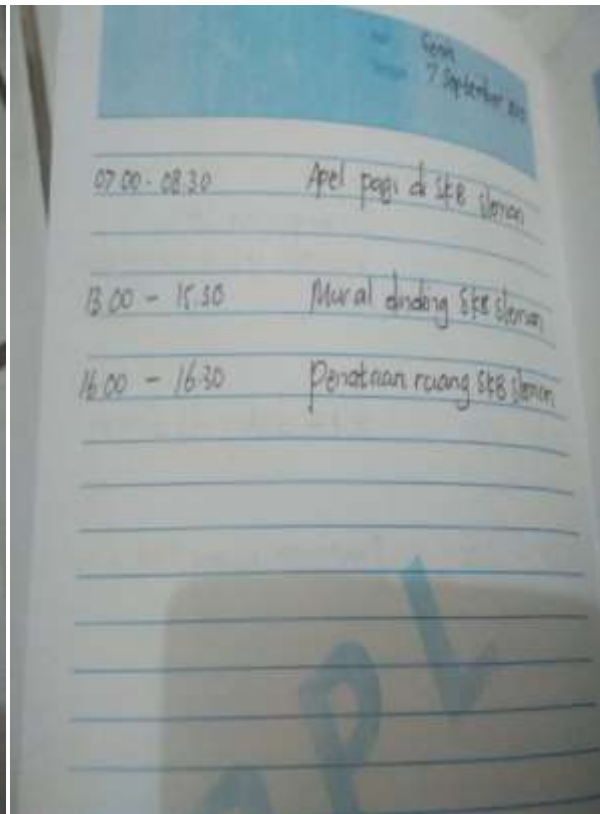 Senin
7 September
07.00 - 08.30 Apel pagi di SKB Sleman
13.00 - 15.30 Mural dinding SKB Sleman
16.00 - 16.30 Penataan ruang SKB Sleman
PPL